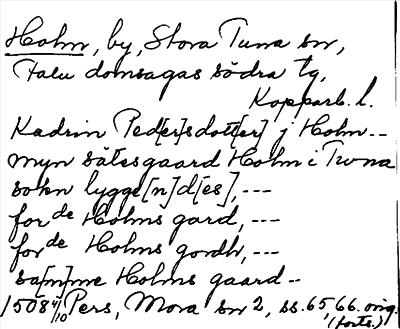 Holm, by, Stora Tuna sn,
Falu domsagas södra tg,
Kopparb. l.
Kadrin Ped[er]sdott[er] j Holm --
myn sätesgaard Holm i Twna
sokn lygge[n]d[es], ---
for de Holms gard, ---
for de Holms gordh, ---
sa[m]me Holms gaard --
1508 4/10 Pers, Mora sn 2, ss. 65, 66. orig.
(forts.)